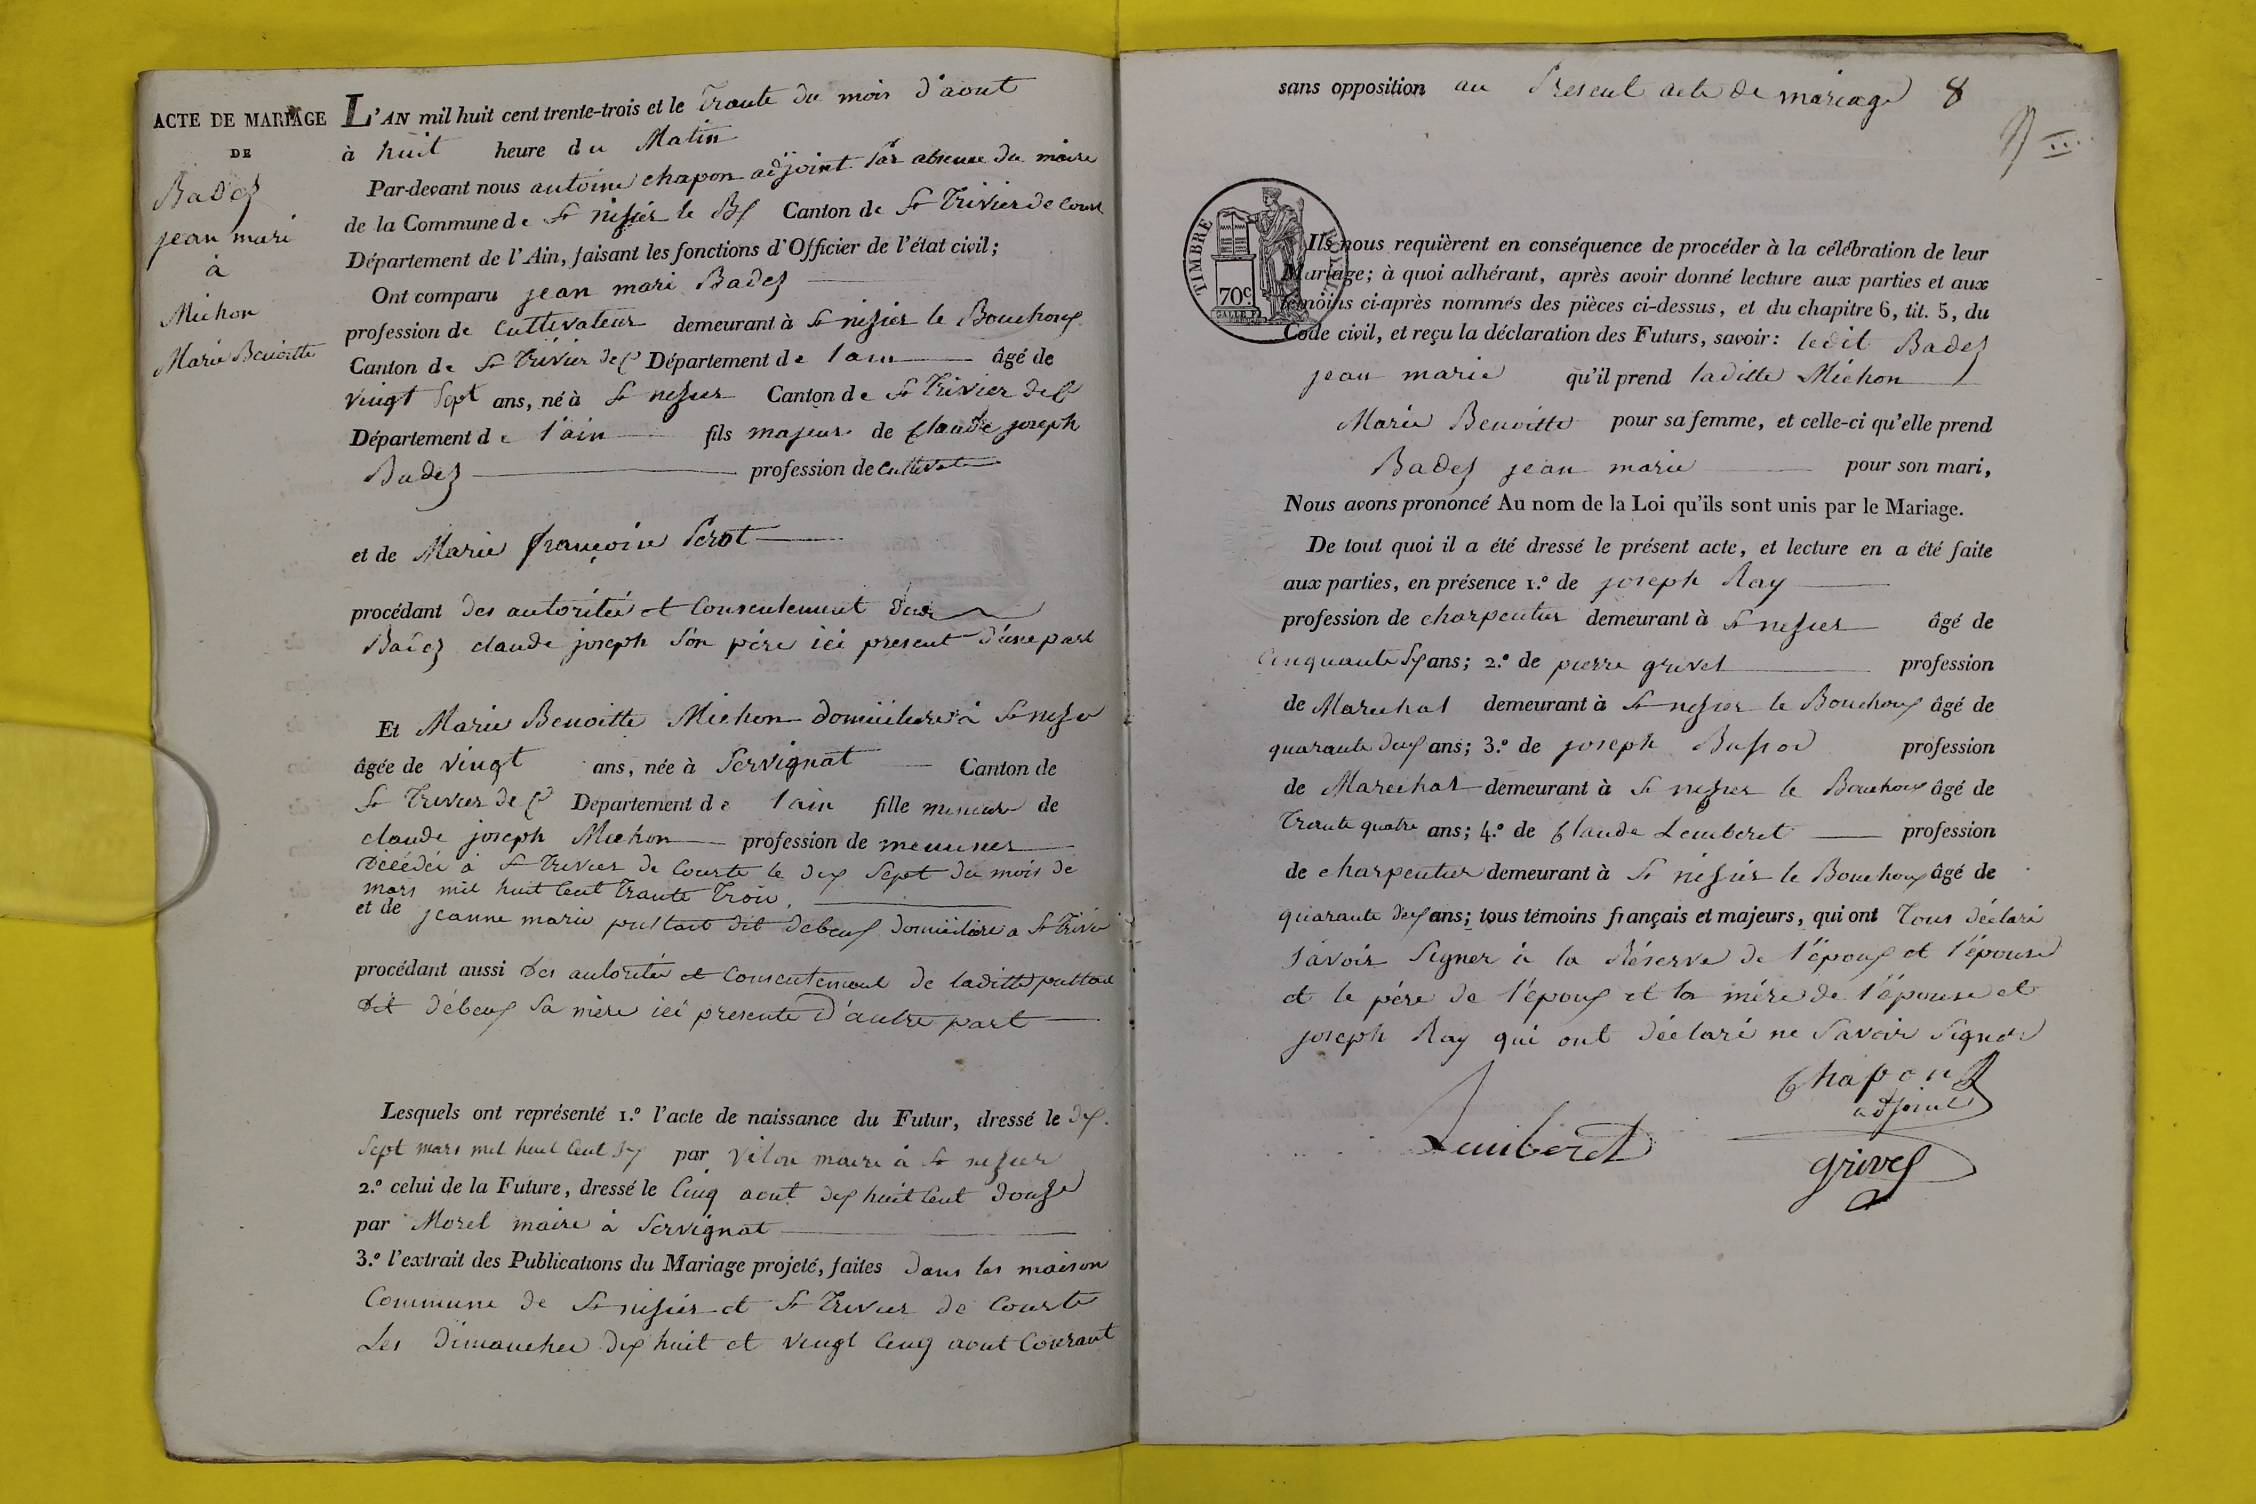 ACTE DE MARIAGE
DE
Badez
jean mari
à
Michon
Marie Benoitte
L'AN mil huit cent trente-trois et le Trante du mois d'aout
à huit heure du Matin
Par-devant nous antoine chapon adjoint Par absence du maire
de la Commune de St nisier le Bx Canton de St Trivier de Court
Département de l'Ain, faisant les fonctions d'Officier de l'état civil;
Ont comparu jean mari Badez
profession de Cultivateur demeurant à St nisier le Bouchoux
Canton de St Trivier de C Département de lain âgé de
vingt Sept ans, né à St nisier Canton de St Trivier de C
Département de l'ain fils majeur de Claude joseph
Badez profession de Cultivateur
et de Marie françoise Perot
procédant des autorité et Consentement
Badez claude joseph Son père ici present d'une part
Et Marie Benoitte Michon domicilière à St nisier
âgée de vingt ans, née à Servignat Canton de
St Trivier de C Département de lain fille mineure de
claude joseph Michon profession de meunier
Décédé à St Trivier de Courte le dix Sept du mois de
mars mil huit Cent Trante Trois
et de jeanne marie puttout dit debeuf domicilière a St Trivier
procédant aussi Des autorité et Consentement de laditte puttout
dit débeuf Sa mère ici presente D'autre part
Lesquels ont représenté 1.º l'acte de naissance du Futur, dressé le dix
Sept mars mil huit Cent Six par vilon maire à St nisier
2.º celui de la Future, dressé le Cinq aout dix huit Cent douze
par Morel maire à Servignat
3.º l'extrait des Publications du Mariage projeté, faites dans les maison
Commune de St nisier et St Trivier de Courte
Les Dimanches dix huit et vingt Cinq aout Courant
sans opposition au Present acte de mariage 8
TIMBRE ROYAL
70c
Ils nous requièrent en conséquence de procéder à la célébration de leur
Mariage; à quoi adhérant, après avoir donné lecture aux parties et aux
témoins ci-après nommés des pièces ci-dessus, et du chapitre 6, tit. 5, du
Code civil, et reçu la déclaration des Futurs, savoir: ledit Badez
jean marie qu'il prend laditte Michon
Marie Benoitte pour sa femme, et celle-ci qu'elle prend
Badez jean marie pour son mari,
Nous avons prononcé Au nom de la Loi qu'ils sont unis par le Mariage.
De tout quoi il a été dressé le présent acte, et lecture en a été faite
aux parties, en présence 1.º de joseph Ray
profession de charpentier demeurant à St nisier âgé de
Cinquante Six ans; 2.º de pierre grivel profession
de Marechal demeurant à St nisier le Bouchoux âgé de
quarante deux ans; 3.º de joseph Bussod profession
de Marechal demeurant à St nisier le Bouchoux âgé de
Trante quatre ans; 4.º de Claude Lemberet profession
de charpentier demeurant à St nisier le Bouchoux âgé de
quarante deux ans; tous témoins français et majeurs, qui ont Tous déclaré
Savoir Signer à la Réserve de l'époux et l'épouse
et le père de l'époux et la mère de l'épouse et
joseph Ray qui ont déclaré ne Savoir Signer
Chapon
adjoint
Lemberet
grivel